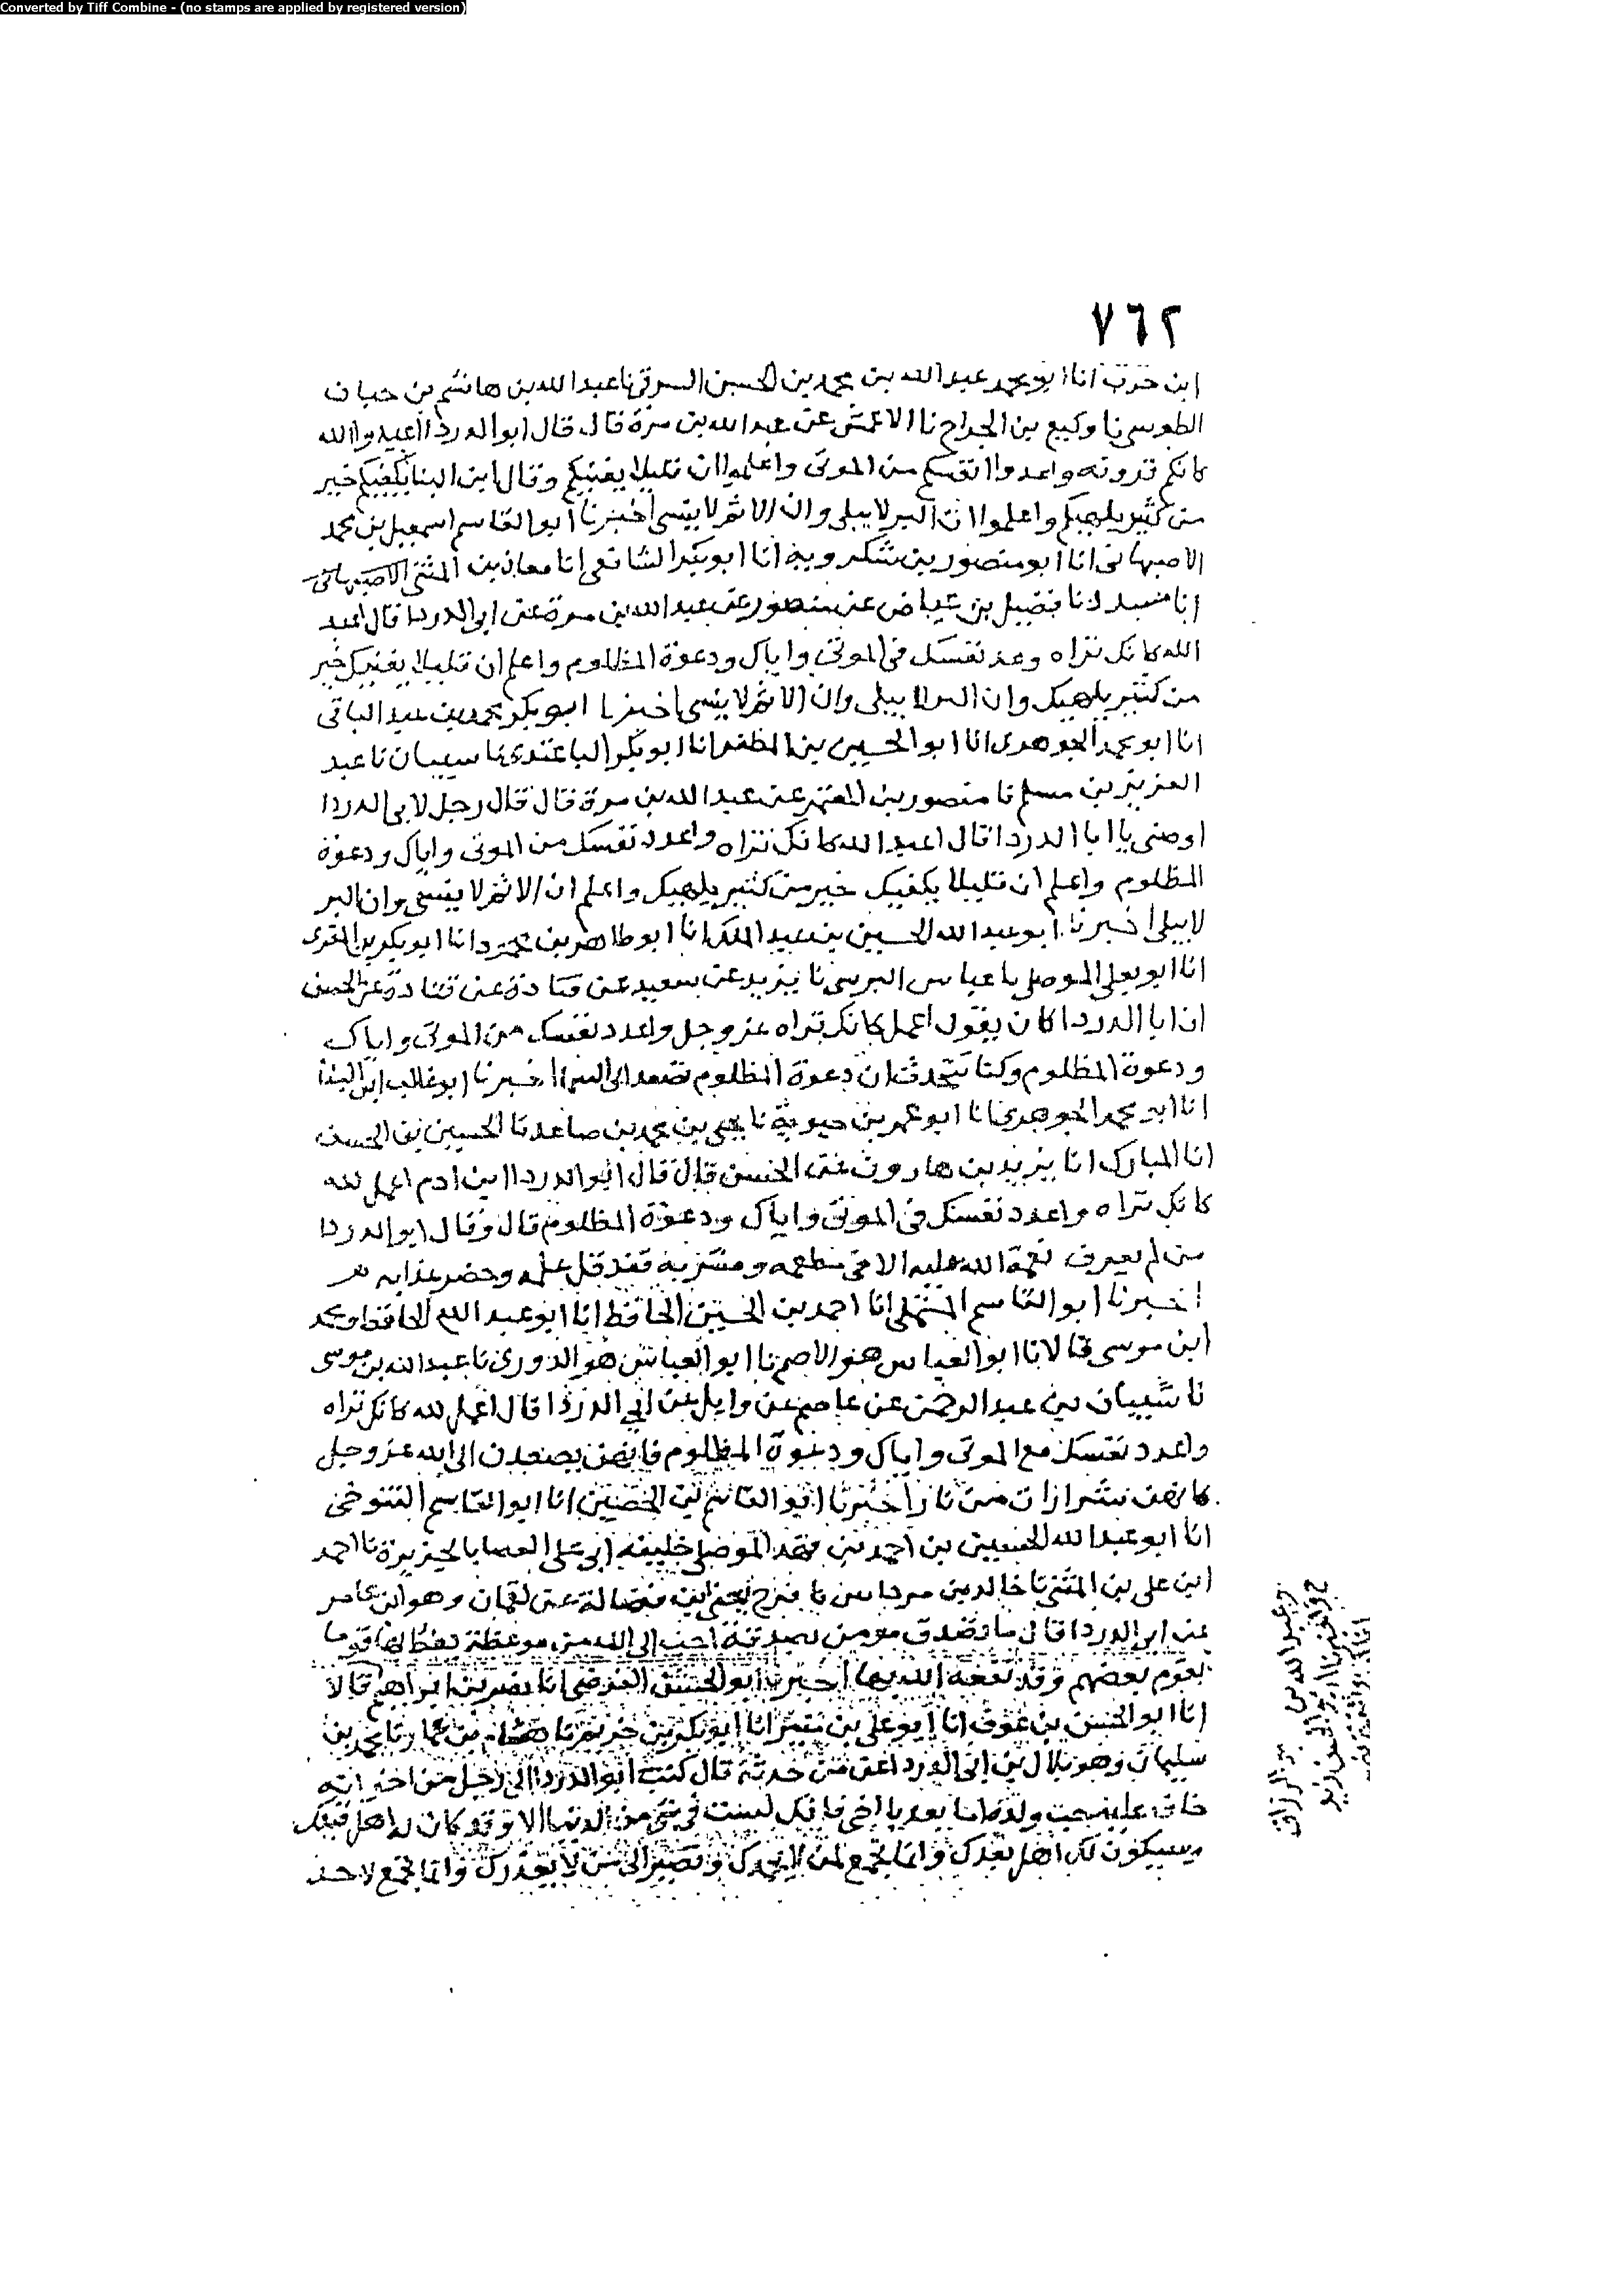 Converted by Tiff Combine - (no stamps are applied by registered version)
٧٦٢
ابن حرب انا ابو محمد عبدالله بن محمد بن الحسين السرقي نا عبدالله بن هاشم بن حيان
الطوسي نا وكيع بن الجراح نا الاعمش عن عبدالله بن مرة قال قال ابوالدرداء اعبدوا الله
كانكم ترونه واعدوا انفسكم من الموتى واعلموا ان قليلا يغنيكم وقال ابن البنا يكفيكم خير
من كثير يلهيكم واعلموا ان البر لا يبلى وان الاثم لا ينسى اخبرنا ابو القاسم اسمعيل بن محمد
الاصبهاني انا ابو منصور بن شكرويه انا ابو بكر الشافعي انا معاذ بن المثنى
انا مسدد نا فضيل بن عياض عن منصور عن عبدالله بن مرة عن ابي الدردا قال اعبد
الله كانك تراه وعد نفسك في الموتى واياك ودعوة المظلوم واعلم ان قليلا يغنيك خير
من كثير يلهيك وان البر لا يبلى وان الاثم لا ينسى اخبرنا ابو بكر محمد بن عبد الباقي
انا ابو محمد الجوهري انا ابو الحسين بن المظفر انا ابو بكر الباغندي نا شيبان نا عبد
العزيز بن مسلم نا منصور بن المعتمر عن عبدالله بن مرة قال قال رجل لابي الدردا
اوصني يا ابا الدردا قال اعبد الله كانك تراه واعدد نفسك من الموتى واياك ودعوة
المظلوم واعلم ان قليلا يكفيك خير من كثير يلهيك واعلم ان الاثم لا ينسى وان البر
لا يبلى اخبرنا ابو عبد الله الحسين بن عبد الملك انا ابو طاهر بن محمود انا ابو بكر بن المقرى
انا ابو يعلى الموصلي نا عباس النرسي نا يزيد عن سعيد عن قتادة عن قتادة عن الحسن
ان ابا الدردا كان يقول اعمل كانك تراه عز وجل واعدد نفسك من الموتى واياك
ودعوة المظلوم وكنا نتحدث ان دعوة المظلوم تصعد الى السما اخبرنا ابو غالب ابن البنا
انا ابو محمد الجوهري انا ابو عمر بن حيوية نا يحيى بن محمد بن صاعد نا الحسين بن الحسن
انا المبارك انا يزيد بن هارون عن الحسن قال قال ابو الدردا ابن ادم اعمل لله
كانك تراه واعدد نفسك في الموتى واياك ودعوة المظلوم قال وقال ابو الدردا
من لم يعرف نعمة الله عليه الا في مطعمه ومشربه فقد قل علمه وحضر عذابه
اخبرنا ابو القاسم المستملي انا احمد بن الحسين الحافظ انا ابو عبد الله الحافظ ومحمد
ابن موسى قالا نا ابو العباس هو الاصم نا ابو العباس هو الدوري نا عبيد الله بن موسى
نا شيبان بن عبد الرحمن عن عاصم عن وايل عن ابي الدردا قال اعمل لله كانك تراه
واعدد نفسك مع الموتى واياك ودعوة المظلوم فانهن يصعدن الى الله عز وجل
كانهن شرارات من نار اخبرنا ابو القاسم بن الحصين انا ابو القاسم التنوخي
انا ابو عبد الله الحسين بن احمد بن فهد الموصلي خليفة ابي على العصا بالجزيرة نا احمد
ابن علي بن المثنى نا خالد بن مرداس نا فرج يعني ابن فضالة عن لقمان وهو ابن عامر
عن ابي الدردا قال ما تصدق مومن بصدقة احب الى الله من موعظة يعظ بها قوما
يقوم بعضهم وقد نفعه الله بها اخبرنا ابو الحسن الفرضي انا نصر بن ابراهيم قالا
انا ابو الحسن بن عوف انا ابو علي بن منير انا ابو بكر بن خريم نا هشام بن عمار نا محمد بن
سليمان وهو بلال بن ابي الدردا عن من حدثه قال كتب ابو الدردا الى رجل من اخوانه
خاف عليه حب ولده اما بعد يا اخي فانك لست في شي من الدنيا الا وقد كان له اهل قبلك
وسيكون لك اهل بعدك وانما تجمع لمن لا يحمدك وتصير الى من لا يعذرك وانما تجمع لاحد
وعبد الله بن عبد الرزاق
ح واخبرنا ابو الحسن زيد